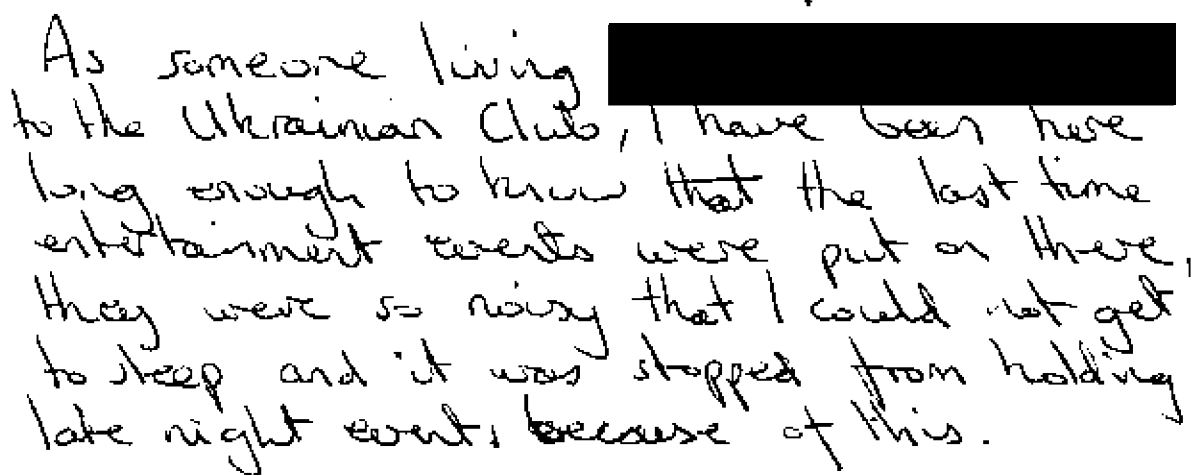 As someone living
to the Ukrainian Club, I have been here
long enough to know that the last time
entertainment events were put on there,
they were so noisy that I could not get
to sleep and it was stopped from holding
late night events because of this.